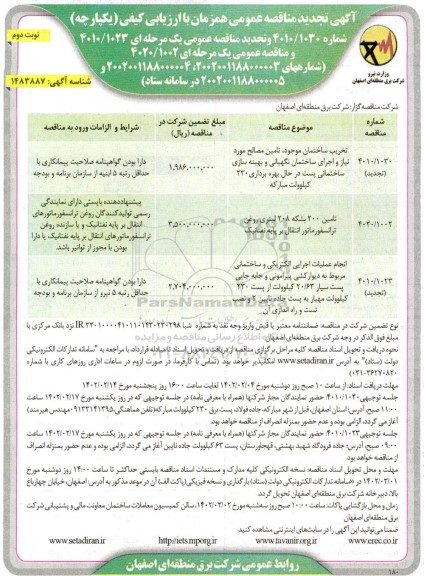 آگهی تجدید مناقصه عمومی همزمان با ارزیابی کیفی (یکپارچه)
شماره ۴۰۱۰/۱۰۳۰ وتجدید مناقصه عمومی یک مرحله ای ۴۰۱۰/۱۰۲۳
و مناقصه عمومی یک مرحله ای ۴۰۲۰/۱۰۰۲
(شماره‌های ۲۰۰۲۰۰۱۱۸۸۰۰۰۰۰۳، ۲۰۰۲۰۰۱۱۸۸۰۰۰۰۰۴ و
۲۰۰۲۰۰۱۱۸۸۰۰۰۰۰۵ در سامانه ستاد)
نوبت دوم
شناسه آگهی: ۱۴۸۳۸۸۷
وزارت نیرو
شرکت برق منطقه‌ای اصفهان
شرکت مناقصه‌گزار: شرکت برق منطقه‌ای اصفهان
شماره مناقصه
موضوع مناقصه
مبلغ تضمین شرکت در مناقصه (ریال)
شرایط و الزامات ورود به مناقصه
۴۰۱۰/۱۰۳۰
(تجدید)
تخریب ساختمان موجود، تامین مصالح مورد
نیاز و اجرای ساختمان نگهبانی و بهینه سازی
ساختمانی پست در حال بهره برداری ۲۳۰
کیلوولت مبارکه
۱,۹۸۶,۰۰۰,۰۰۰
دارا بودن گواهینامه صلاحیت پیمانکاری با
حداقل رتبه ۵ ابنیه از سازمان برنامه و بودجه
۴۰۲۰/۱۰۰۲
تامین ۲۰۰ بشکه ۲۰۸ لیتری روغن
ترانسفورماتور انتقال بر پایه نفتانیک
۳,۵۰۰,۰۰۰,۰۰۰
پیشنهاددهنده بایستی دارای نمایندگی
رسمی تولیدکنندگان روغن ترانسفورماتورهای
انتقال بر پایه نفتانیک و یا سازنده روغن
ترانسفورماتورهای انتقال بر پایه نفتانیک یا دارا
بودن با مجوز از توانیر باشد.
۴۰۱۰/۱۰۲۳
(تجدید)
انجام عملیات اجرایی الکتریکی و ساختمانی
مربوط به دیوارکشی پیرامونی و جابه جایی
پست سیار ۶۳/۲۰ کیلوولت از پست ۲۳۰
کیلوولت مهیار به پست جاده نایین ۲ و نصب
تست و راه اندازی آن
۲,۷۰۴,۰۰۰,۰۰۰
دارا بودن گواهینامه صلاحیت پیمانکاری با
حداقل رتبه ۵ نیرو از سازمان برنامه و بودجه
نوع تضمین شرکت در مناقصه: ضمانتنامه معتبر یا فیش واریز وجه نقد به شماره شبا نزد بانک مرکزی با
مبلغ فوق الذکر در وجه شرکت برق منطقه‌ای اصفهان
نحوه دریافت و تحویل اسناد مناقصه: کلیه مراحل برگزاری مناقصه از دریافت و تحویل اسناد تا مبادله قرارداد، با مراجعه به "سامانه تدارکات الکترونیکی
دولت (ستاد)" به آدرس www.setadiran.ir امکانپذیر خواهد بود
مهلت دریافت اسناد: از ساعت ۱۰ صبح روز دوشنبه مورخ ۱۴۰۲/۰۲/۰۴ لغایت ساعت ۱۶:۰۰ روز پنجشنبه مورخ ۱۴۰۲/۰۲/۱۴
جلسه توجیهی ۴۰۱۰/۱۰۳۰: حضور نمایندگان مجاز شرکتها (همراه با معرفی نامه) در جلسه توجیهی که در روز یکشنبه مورخ ۱۴۰۲/۰۲/۱۷ ساعت
۱۱:۰۰ صبح، آدرس: استان اصفهان، قبل از شهر مبارکه، جاده فولاد، پست برق ۲۳۰ کیلوولت مبارکه (تلفن هماهنگی ۰۹۱۳۳۱۴۱۳۹۵ مهندس هیرمند)
برگزار می گردد، الزامی بوده و عدم حضور بمنزله انصراف از مناقصه خواهد بود.
جلسه توجیهی ۴۰۱۰/۱۰۲۳: حضور نمایندگان مجاز شرکتها (همراه با معرفی نامه) در جلسه توجیهی که در روز یکشنبه مورخ ۱۴۰۲/۰۲/۱۷ ساعت
۰۹:۰۰ صبح، آدرس: جاده فرودگاه شهید بهشتی، قهجاورستان، پست ۶۳ کیلوولت جاده نایین آبی برگزار می گردد، الزامی بوده و عدم حضور بمنزله انصراف
از مناقصه خواهد بود.
مهلت و محل تحویل اسناد مناقصه: نسخه الکترونیکی کلیه مدارک و مستندات اسناد مناقصه بایستی حداکثر تا ساعت ۱۴:۰۰ روز دوشنبه مورخ
۱۴۰۲/۰۳/۰۱ در «سامانه تدارکات الکترونیکی دولت (ستاد) بارگذاری و نسخه فیزیکی (پاکت الف) آن در موعد مذکور به آدرس: اصفهان، خیابان چهارباغ
بالا، دبیرخانه شرکت برق منطقه‌ای اصفهان تحویل گردد.
زمان و محل بازگشایی پاکات: ساعت ۱۰:۰۰ صبح روز سه‌شنبه مورخ ۱۴۰۲/۰۳/۰۲، سالن کمیسیون معاملات ساختمان معاونت مالی و پشتیبانی شرکت
برق منطقه‌ای اصفهان
ضمنا می توانید این آگهی را در سایت‌های اینترنتی مشاهده کنید
www.setadiran.ir http://iets.mporg.ir www.tavanir.org.ir www.erec.co.ir
روابط عمومی شرکت برق منطقه‌ای اصفهان
۱۸۰